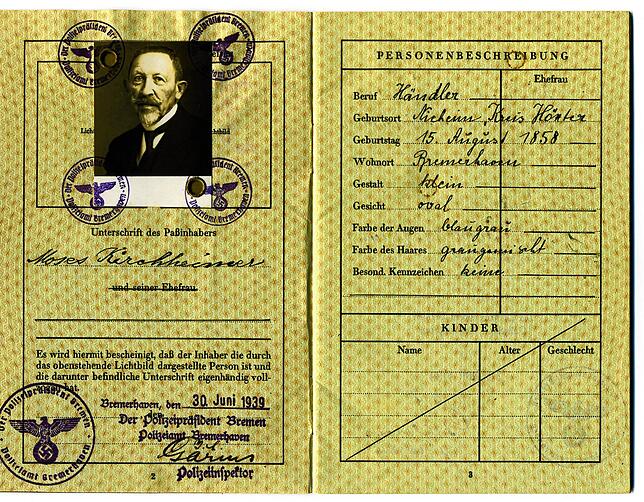 Der Polizeipräsident
Der Polizeipräsident
Lich
bild
Der Polizeipräsident Bremen
Polizeiamt Bremerhaven
Der Polizeipräsident Bremen
Polizeiamt Bremerhaven
Unterschrift des Paßinhabers
Moses Kirchheimer
und seiner Ehefrau
Es wird hiermit bescheinigt, daß der Inhaber die durch
das obenstehende Lichtbild dargestellte Person ist und
die darunter befindliche Unterschrift eigenhändig voll-
hat.
Bremerhaven, den 30. Juni 1939
Der Polizeipräsident Bremen
Polizeiamt Bremerhaven
Polizeiinspektor
Der Polizeipräsident Bremen
Polizeiamt Bremerhaven
2
PERSONENBESCHREIBUNG
Ehefrau
Beruf Händler
Geburtsort Nieheim, Kreis Höxter
Geburtstag 15. August 1858
Wohnort Bremerhaven
Gestalt klein
Gesicht oval
Farbe der Augen blaugrau
Farbe des Haares graugemischt
Besond. Kennzeichen keine
KINDER
Name Alter Geschlecht
3